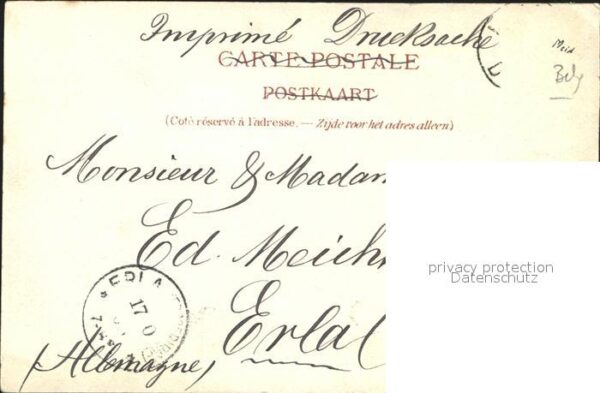 Imprimé Drucksache
CARTE POSTALE
POSTKAART
(Coté réservé à l'adresse. — Zijde voor het adres alleen)
Monsieur & Madam
Ed. Meich
Erla
(Allemagne)
ERLA
17
0
privacy protection
Datenschutz